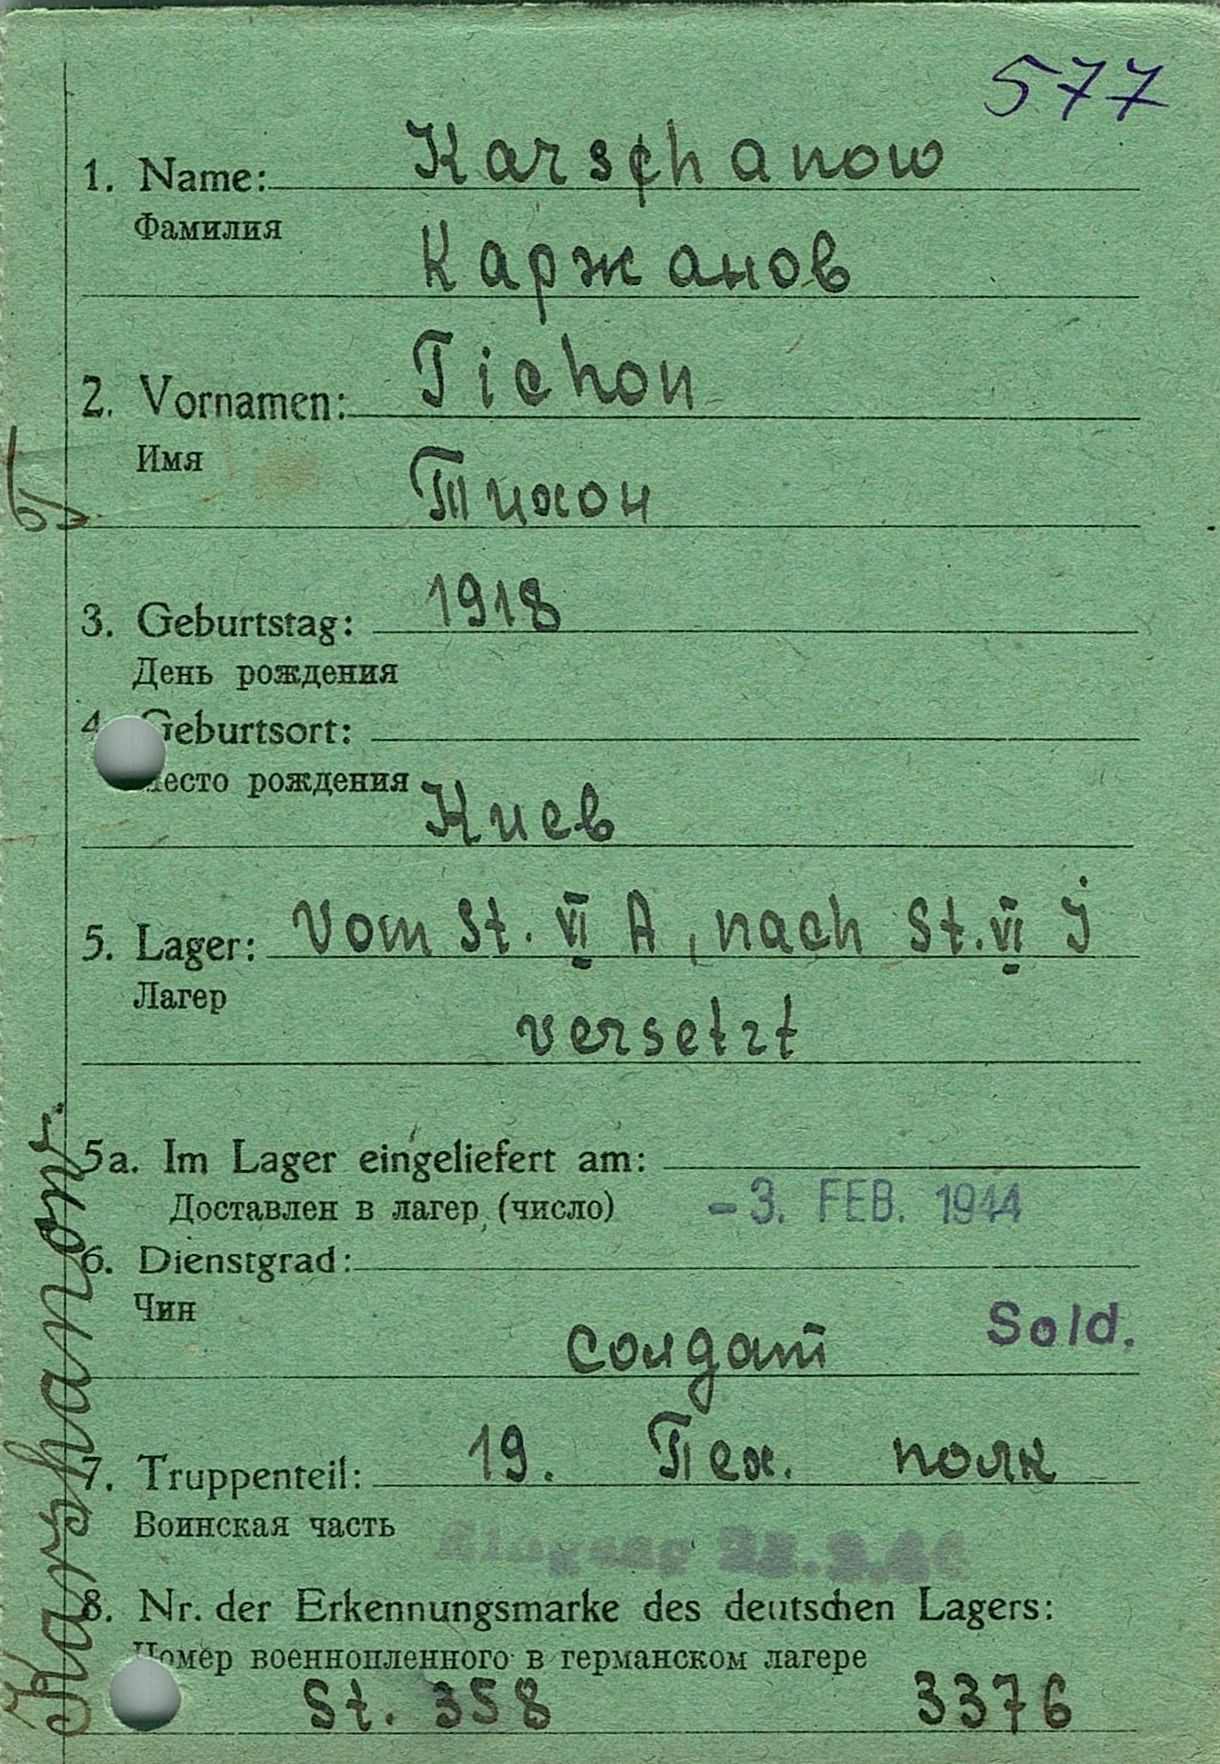 577
1. Name: Karschanow
Фамилия
Каржанов
2. Vornamen: Tichon
Имя
Тихон
3. Geburtstag: 1918
День рождения
4. Geburtsort:
Место рождения
Киев
5. Lager: Vom St. VI A, nach St. VI J
Лагер
versetzt
5a. Im Lager eingeliefert am:
Доставлен в лагер (число) -3. FEB. 1944
6. Dienstgrad:
Чин
солдат Sold.
7. Truppenteil: 19. Пех. полк
Воинская часть
Eingang
8. Nr. der Erkennungsmarke des deutschen Lagers:
Номер военнопленного в германском лагере
St. 358 3376
Karshanow.